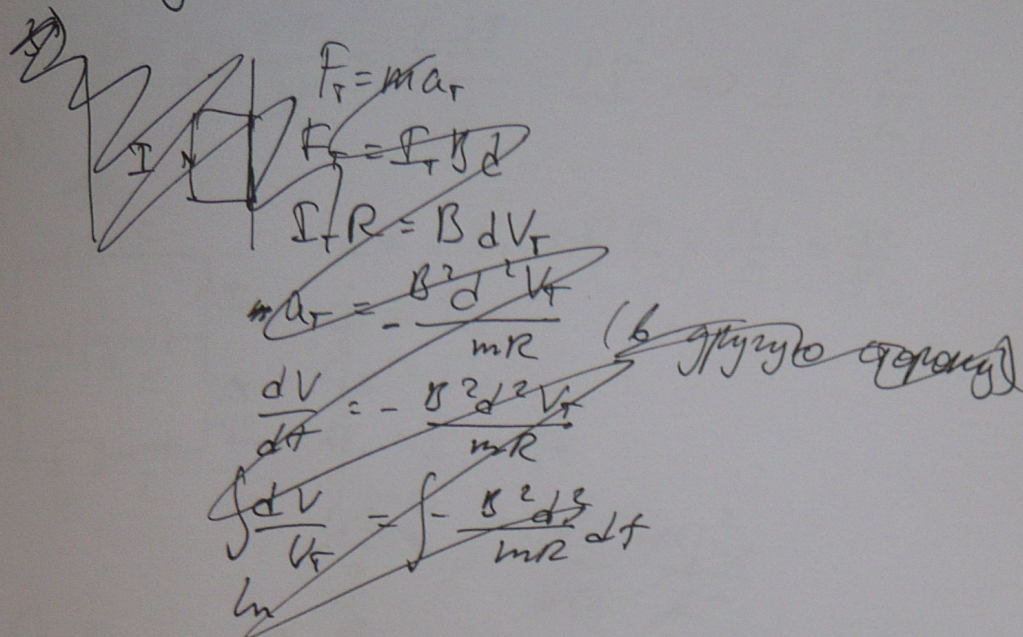 I
F_T = ma_T
F_T = I_T B d
I_T R = B d V_T
a_T = - B²d²V_T / mR
(в другую сторону)
dV/dt = - B²d²V_T / mR
∫ dV/V_T = ∫ - B²d²/mR dt
ln